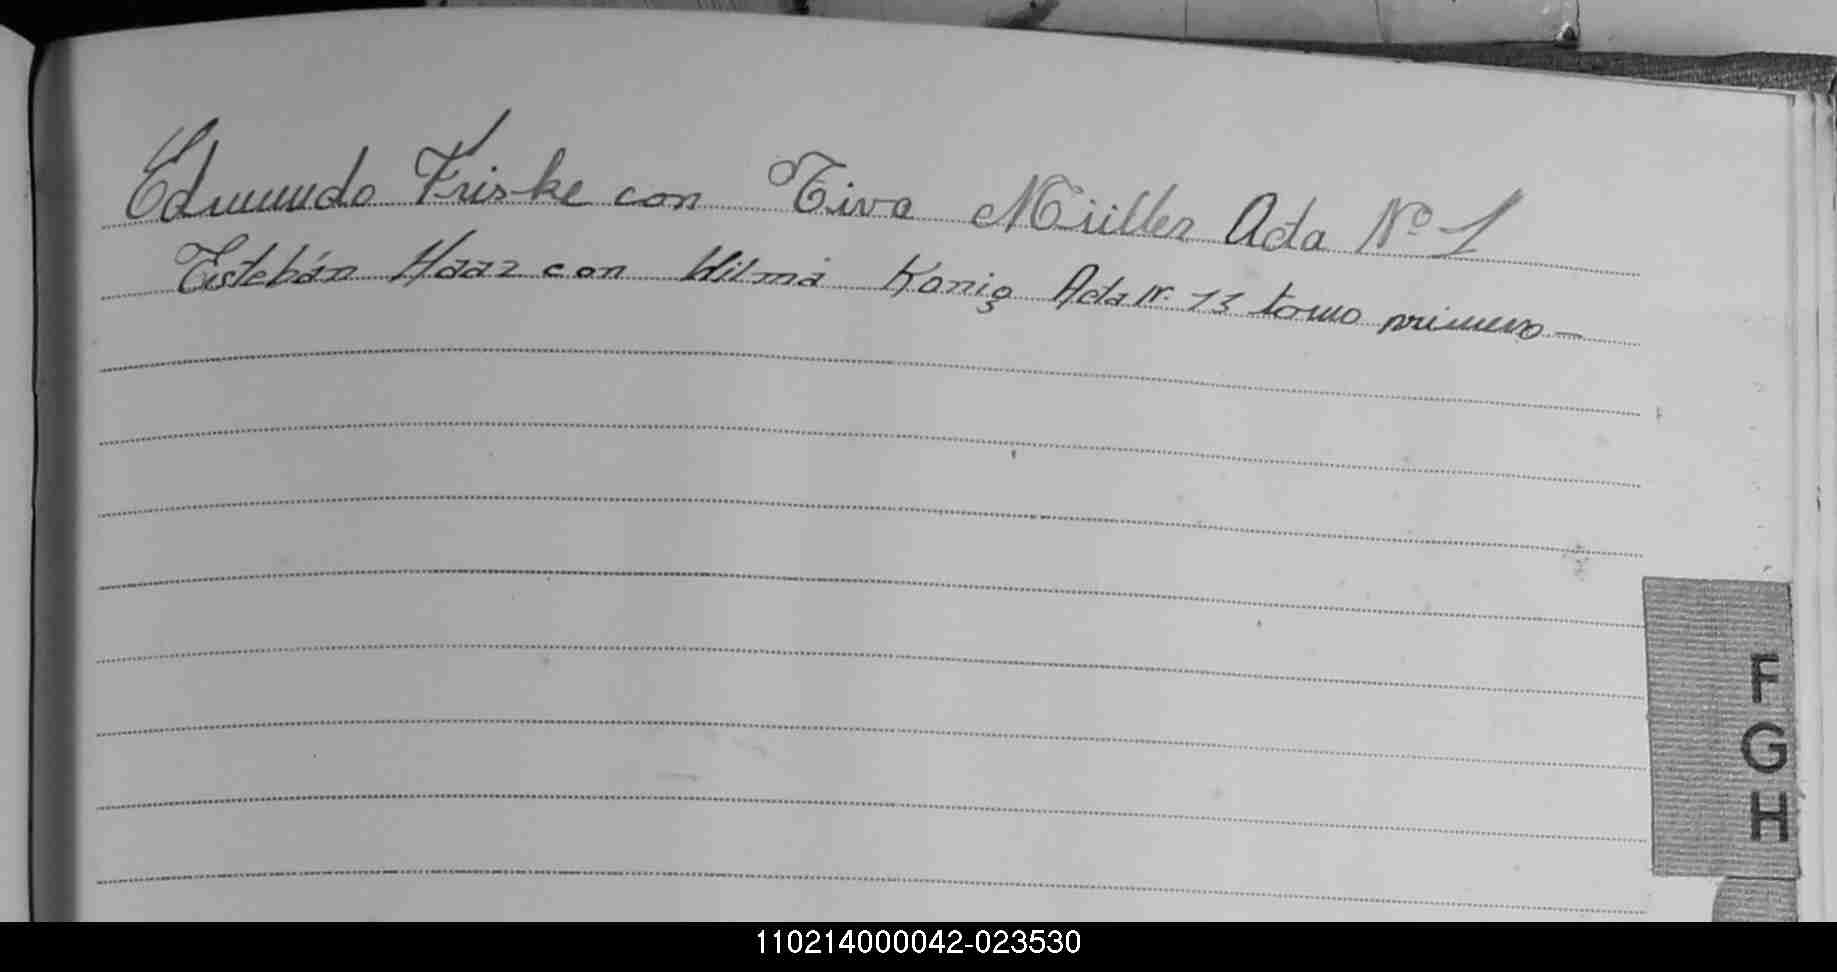 Edmundo Friske con Tiva Müller Acta Nº 1
Estebán Haaz con Wilma Konig Acta Nº 13 tomo primero—
F
G
H
110214000042-023530